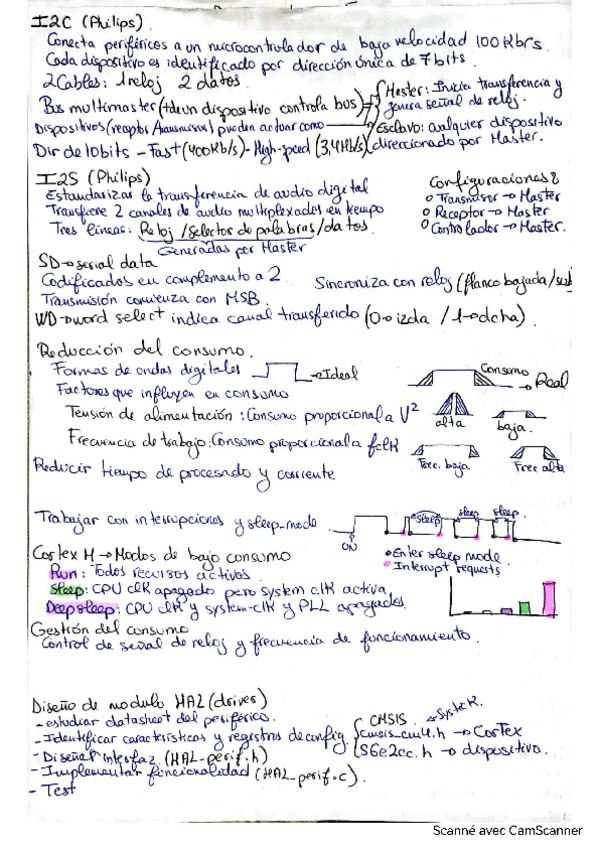 I2C (Philips).
Conecta periféricos a un microcontrolador de baja velocidad 100Kbrs.
Cada dispositivo es identificado por dirección única de 7bits.
2Cables: 1reloj 2 datos.
Bus multimaster (+de un dispositivo controla bus)
Master: Inicia transferencia y
genera señal de reloj.
Dispositivos (receptor /transmisor) pueden actuar como
Esclavo: cualquier dispositivo
direccionado por Master.
Dir de 10bits - Fast (400Kb/s) - High-speed (3,4Mb/s)
I2S (Philips)
Estandarizar la transferencia de audio digital
Transfiere 2 canales de audio multiplexados en tiempo
Tres lineas: Reloj /selector de palabras/datos.
Generadas por Master
Configuraciones:
Transmisor → Master
Receptor → Master
Controlador → Master.
SD → serial data
Codificados en complemento a 2
Sincroniza con reloj (flanco bajada/sub
Transmisión comienza con MSB.
WD → word select indica canal transferido (0→izda / 1→dcha).
Reducción del consumo.
Formas de ondas digitales
→ Ideal
Consumo
→ Real
Factores que influyen en consumo
Tensión de alimentación: Consumo proporcional a V²
alta
baja.
Frecuencia de trabajo: Consumo proporcional a fclk
Frec. baja
Frec alta
Reducir tiempo de procesado y corriente
Trabajar con interrupciones y sleep_mode
sleep
sleep
sleep
ON
Enter sleep mode
Interrupt requests
Cortex M → Modos de bajo consumo
Run: Todos recursos activos
Sleep: CPU clk apagado pero system clk activa
Deepsleep: CPU clk y system-clk y PLL apagados
Gestión del consumo
Control de señal de reloj y frecuencia de funcionamiento.
Diseño de modulo HAL (drivers)
- estudiar datasheet del periférico.
- Identificar características y registros de config
CMSIS
cmsis_cm4.h → Cortex
S6e2cc.h → dispositivo.
- Diseñar interfaz (HAL_perif.h)
- Implementar funcionalidad (HAL_perif.c).
- Test
Scanné avec CamScanner